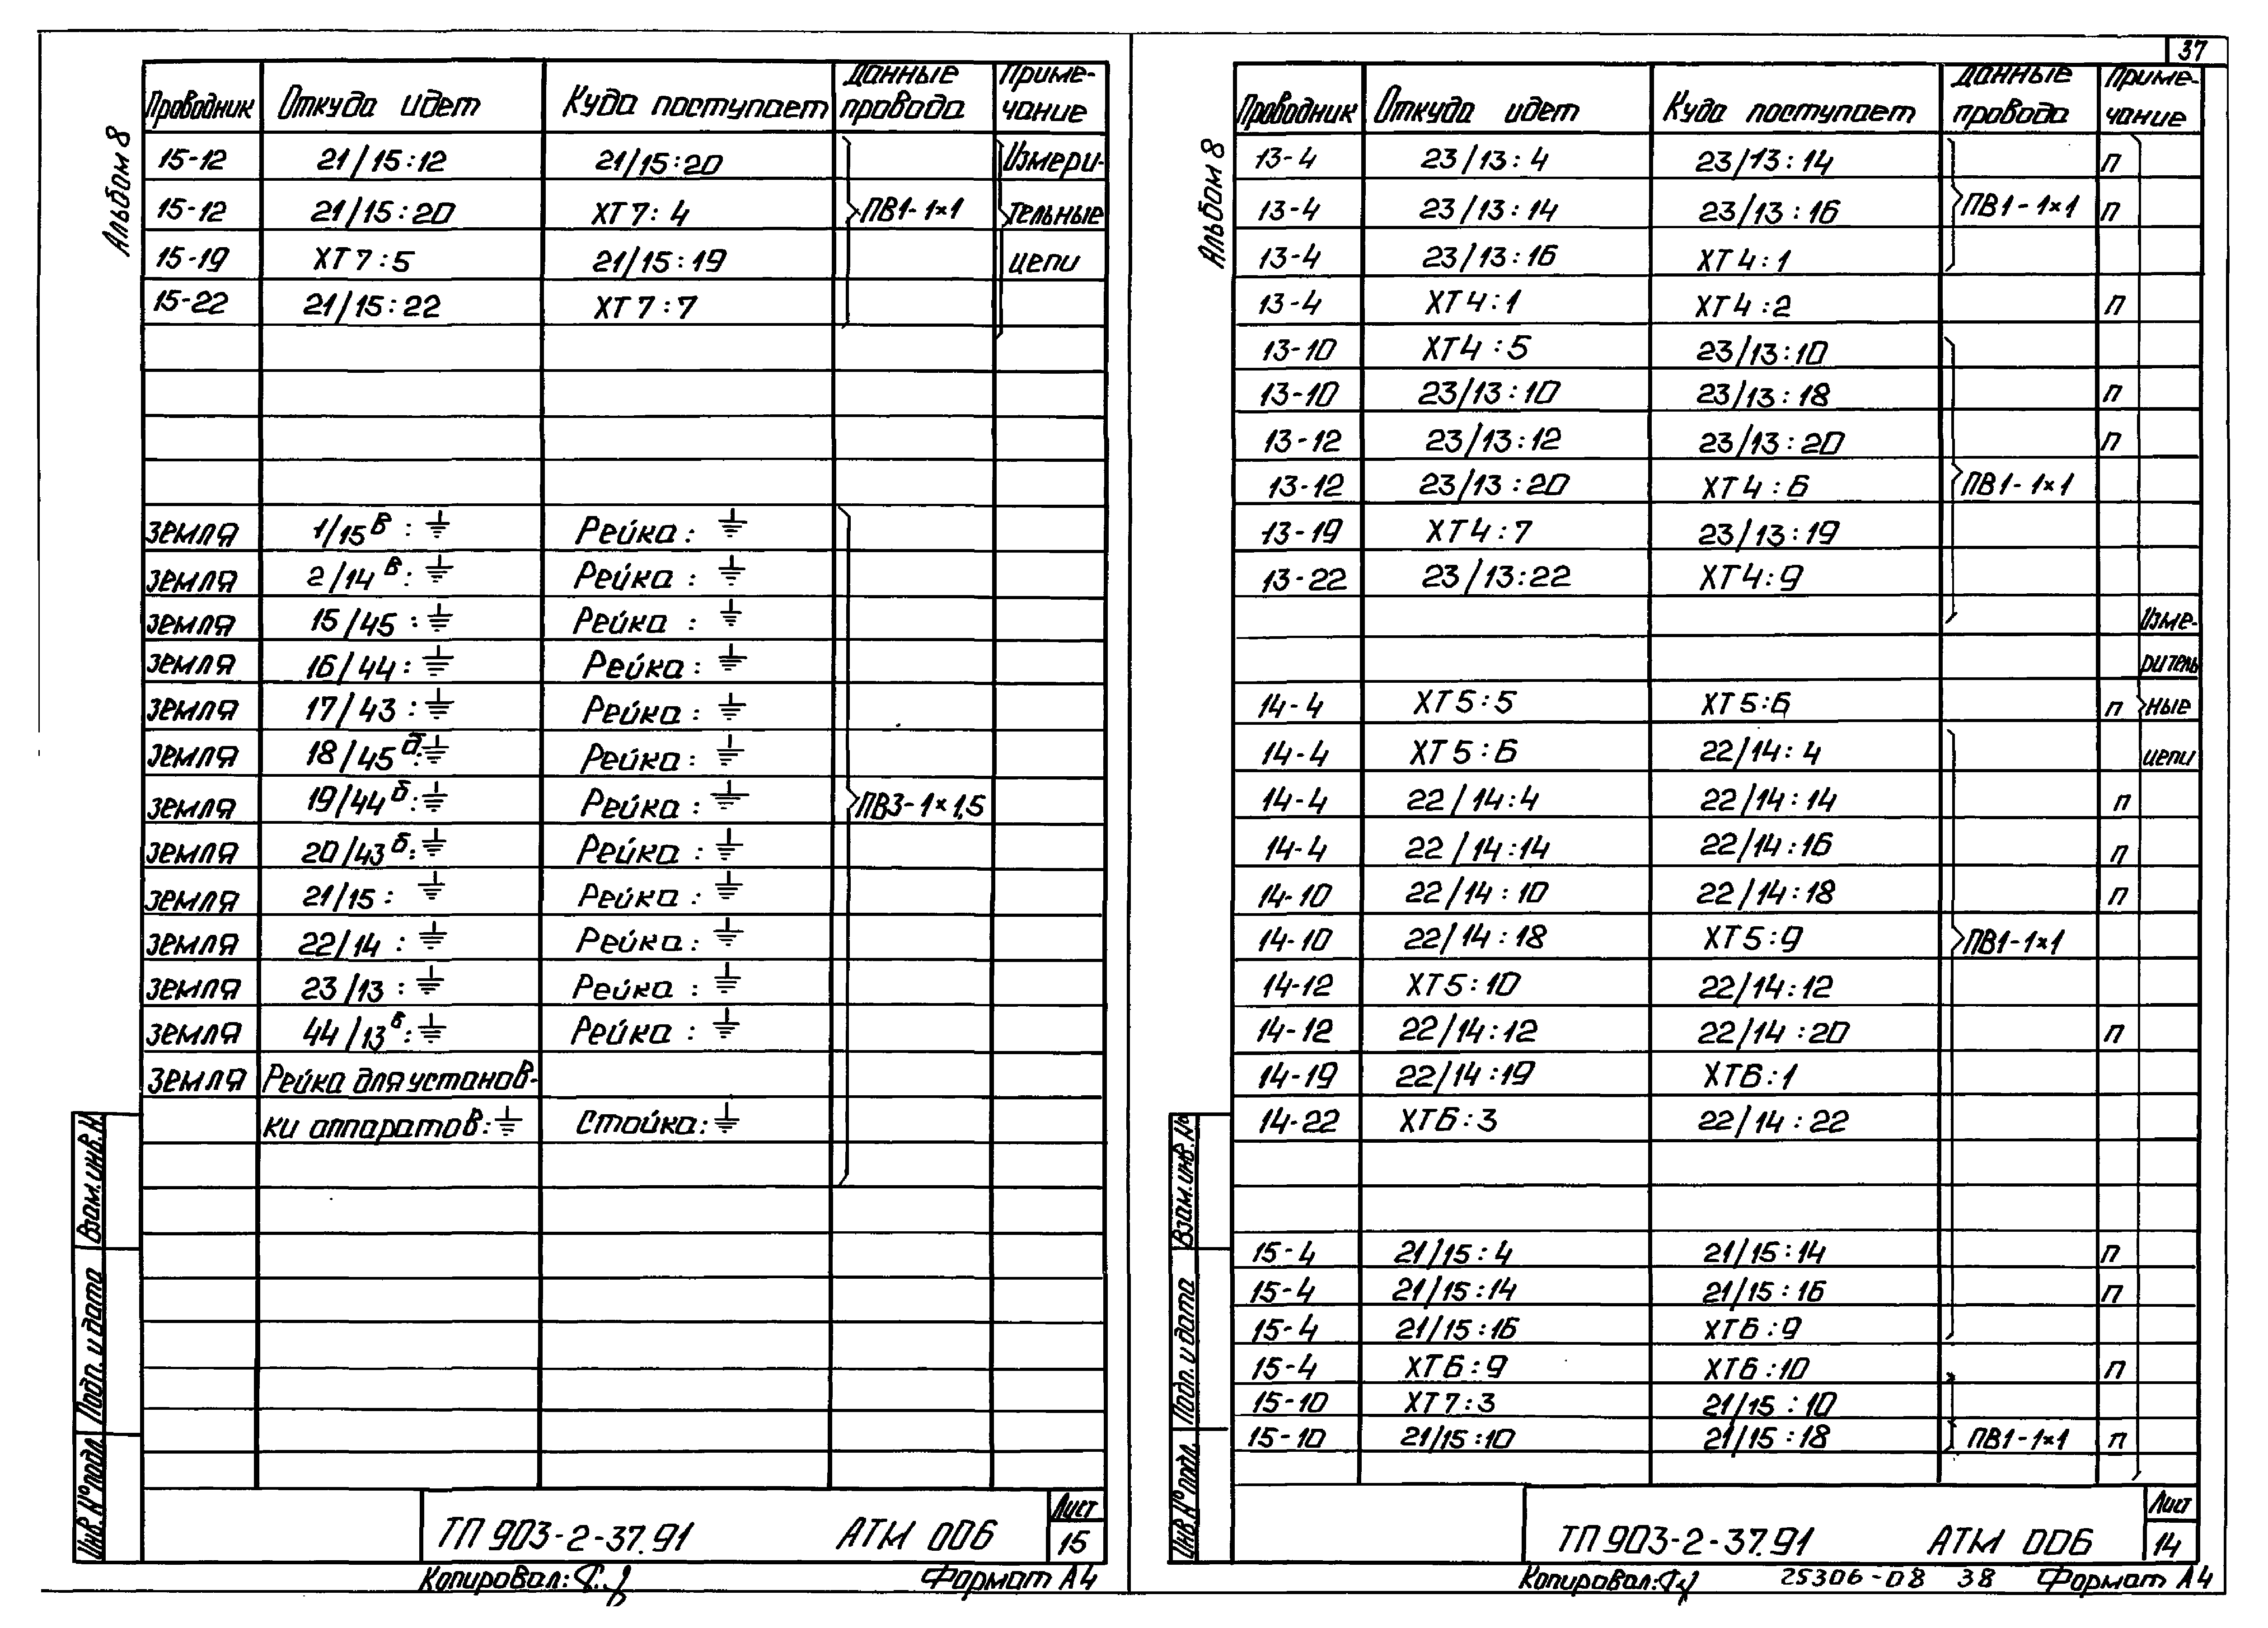 37
Альбом 8
Проводник Откуда идет Куда поступает Данные провода Приме-чание
15-12 21/15:12 21/15:20 Измери-
15-12 21/15:20 ХТ7:4 ПВ1-1×1 тельные
15-19 ХТ7:5 21/15:19 цепи
15-22 21/15:22 ХТ7:7
земля 1/15в:⏚ Рейка:⏚
земля 2/14в:⏚ Рейка:⏚
земля 15/45:⏚ Рейка:⏚
земля 16/44:⏚ Рейка:⏚
земля 17/43:⏚ Рейка:⏚
земля 18/45б:⏚ Рейка:⏚
земля 19/44б:⏚ Рейка:⏚ ПВ3-1×1,5
земля 20/43б:⏚ Рейка:⏚
земля 21/15:⏚ Рейка:⏚
земля 22/14:⏚ Рейка:⏚
земля 23/13:⏚ Рейка:⏚
земля 44/13в:⏚ Рейка:⏚
земля Рейка для установ-
ки аппаратов:⏚ Стойка:⏚
Взам.инв.N
Подп. и дата
Инв.N°подл.
ТП 903-2-37.91 АТМ 006 Лист 15
Копировал: Формат А4
Альбом 8
Проводник Откуда идет Куда поступает Данные провода Приме-чание
13-4 23/13:4 23/13:14 п
13-4 23/13:14 23/13:16 ПВ1-1×1 п
13-4 23/13:16 ХТ4:1
13-4 ХТ4:1 ХТ4:2 п
13-10 ХТ4:5 23/13:10
13-10 23/13:10 23/13:18 п
13-12 23/13:12 23/13:20 п
13-12 23/13:20 ХТ4:6 ПВ1-1×1
13-19 ХТ4:7 23/13:19
13-22 23/13:22 ХТ4:9
Изме-
ритель
14-4 ХТ5:5 ХТ5:6 п ные
14-4 ХТ5:6 22/14:4 цепи
14-4 22/14:4 22/14:14 п
14-4 22/14:14 22/14:16 п
14-10 22/14:10 22/14:18 п
14-10 22/14:18 ХТ5:9 ПВ1-1×1
14-12 ХТ5:10 22/14:12
14-12 22/14:12 22/14:20 п
14-19 22/14:19 ХТ6:1
14-22 ХТ6:3 22/14:22
15-4 21/15:4 21/15:14 п
15-4 21/15:14 21/15:16 п
15-4 21/15:16 ХТ6:9
15-4 ХТ6:9 ХТ6:10 п
15-10 ХТ7:3 21/15:10
15-10 21/15:10 21/15:18 ПВ1-1×1 п
Взам.инв.N°
Подп. и дата
Инв.N°подл.
ТП 903-2-37.91 АТМ 006 Лист 14
Копировал: 25306-08 38 Формат А4